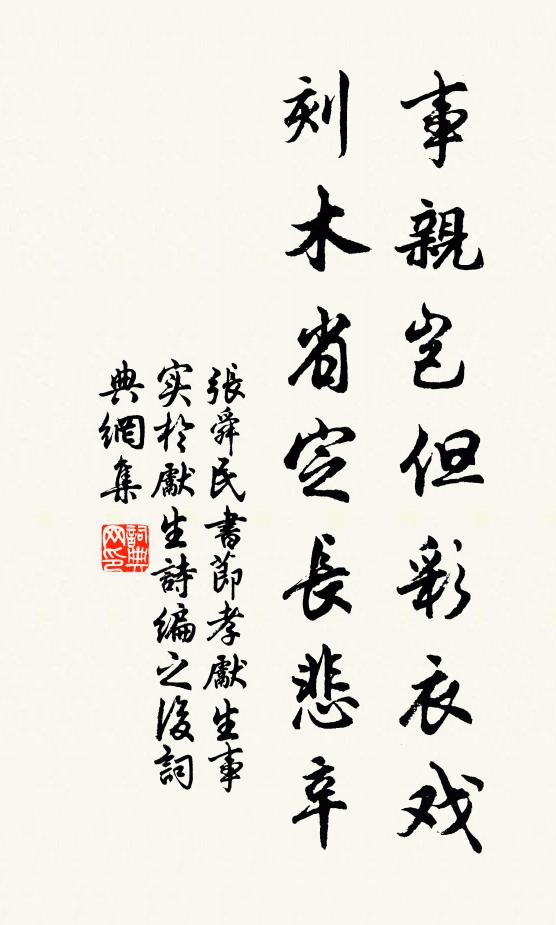 事親岂但彩衣戏
刻木省定長悲辛
張舜民書節孝獻生事
实於獻生詩编之後詞
典網集
詞典网印